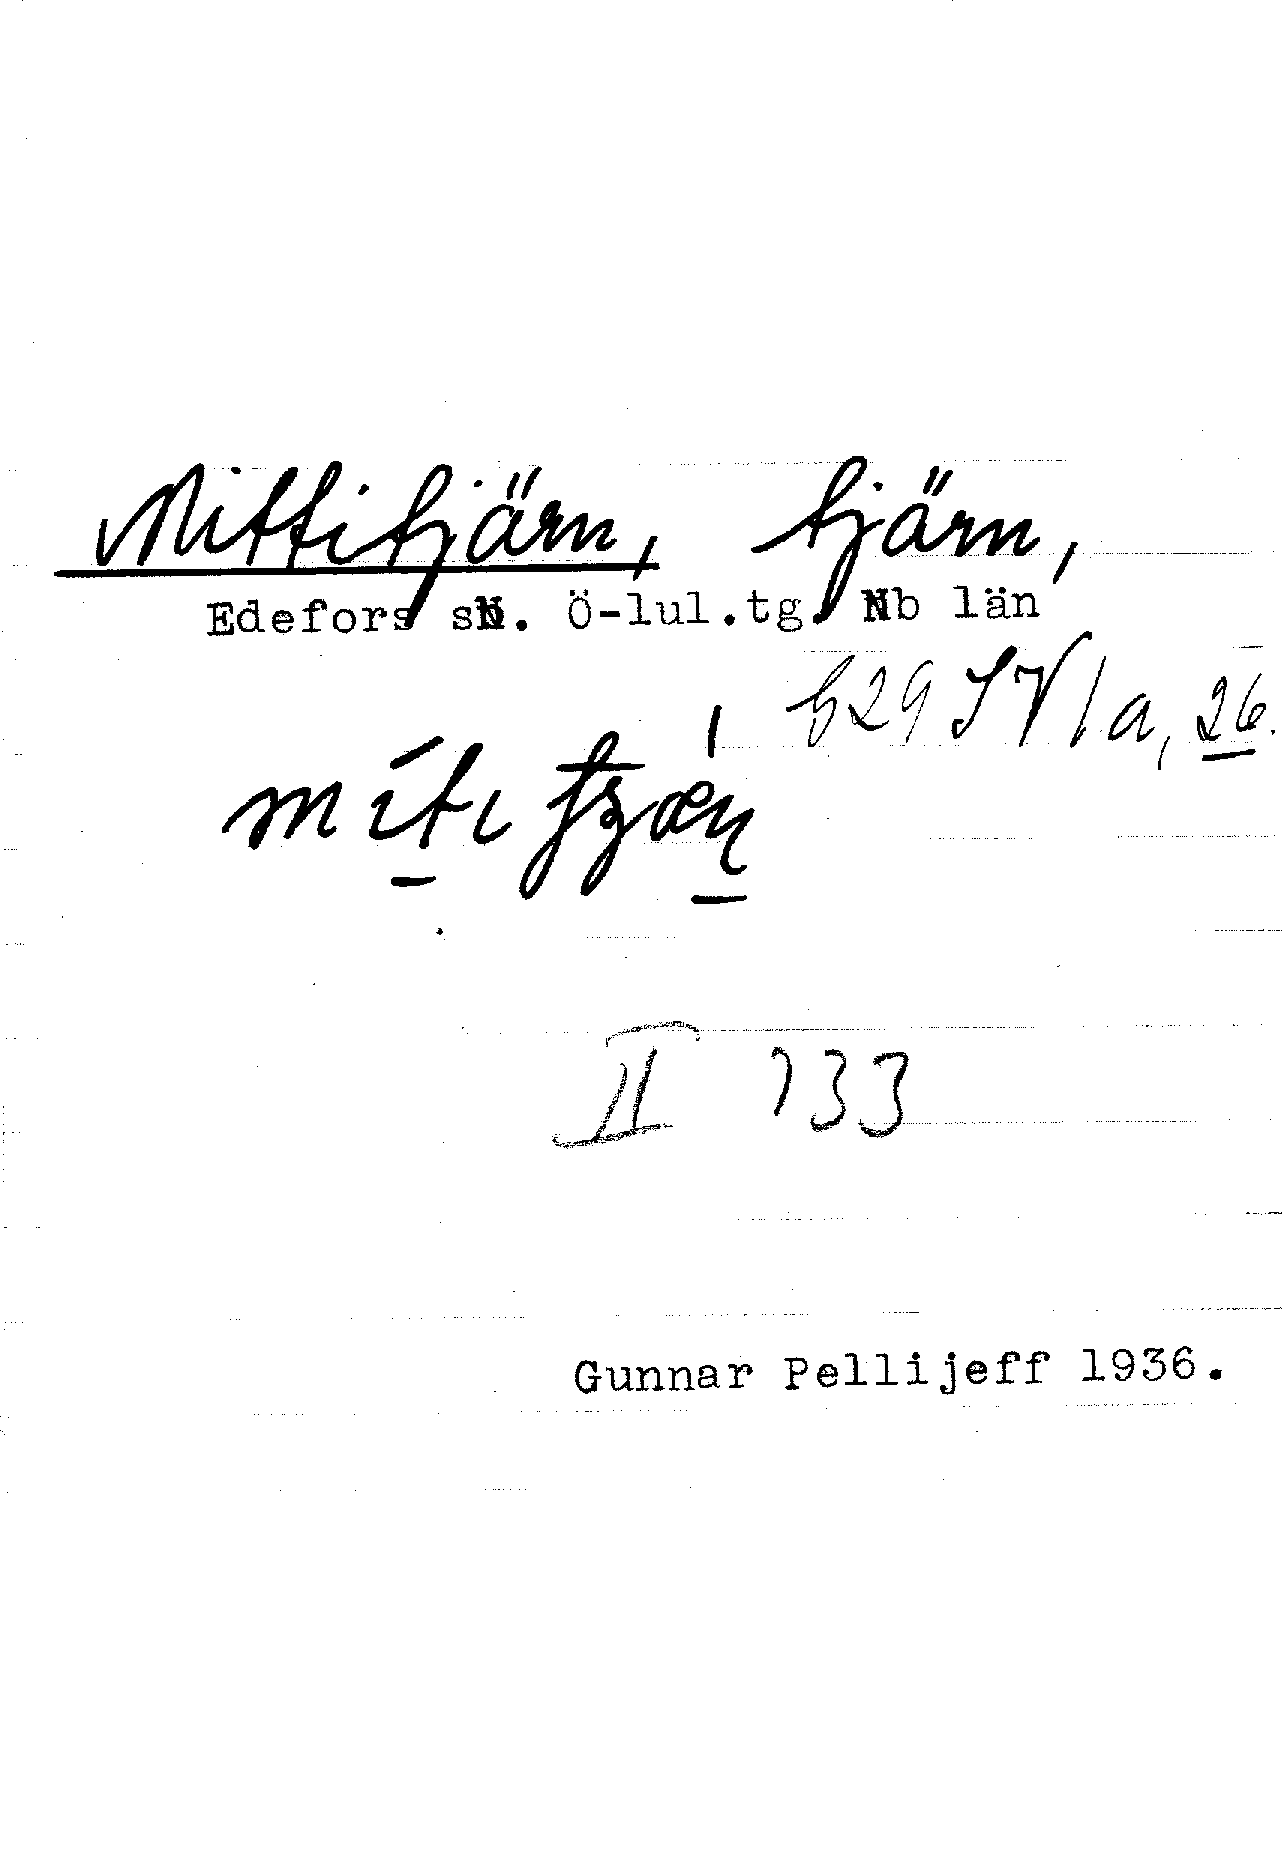 Mittitjärn, tjärn,
Edefors sn. Ö-lul.tg. Nb län
b29 SV/a, 26.
II 133
Gunnar Pellijeff 1936.